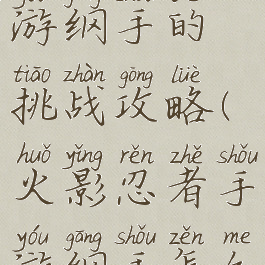 游纲手的
tiāo zhàn gōng lüè
挑战攻略(
huǒ yǐng rěn zhě shǒu
火影忍者手
yóu gāng shǒu zěn me
游纲手怎么